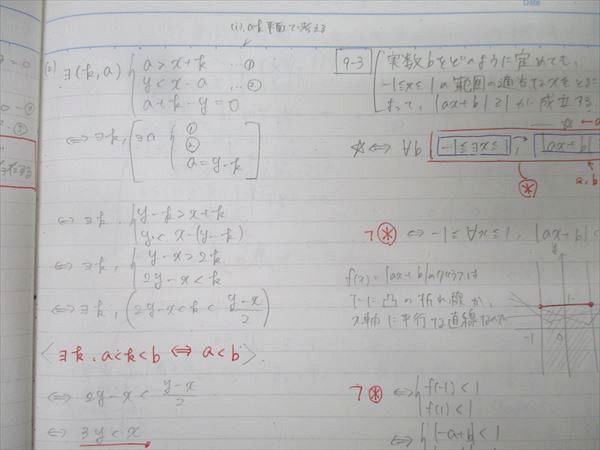 Date
(i) a-k平面で考える
(3) ∃(k, a) { a > x + k … ①
y < x - a … ②
a + k - y = 0
⇔ ∃k, [∃a { ①
②
a = y - k ]
⇔ ∃k, { y - k > x + k
y < x - (y - k)
⇔ ∃k, { y - x > 2k
2y - x < k
⇔ ∃k, (2y - x < k < (y - x)/2)
〈∃k, a < k < b ⇔ a < b〉
⇔ 2y - x < (y - x)/2
⇔ 3y < x
9-3 実数bをどのように定めても、
-1≦x≦1の範囲の適当なxをとる
よって, |ax+b|≧1が成立する
☆
☆ ⇔ ∀b [-1≦∃x≦1, |ax+b|
a, b
※
¬※ ⇔ -1≦∀x≦1, |ax+b| <
f(x) = |ax+b|のグラフは
下に凸の折れ線か、
x軸に平行な直線なので
-1 0
¬※ ⇔ { f(-1) < 1
f(1) < 1
⇔ { |-a+b| < 1